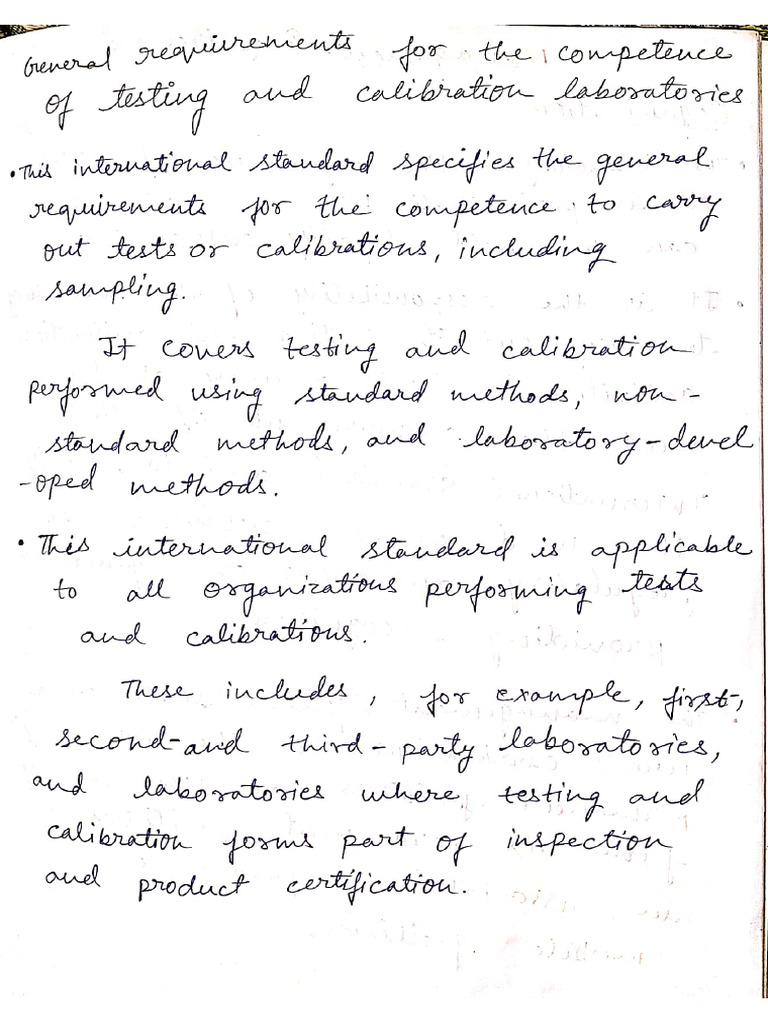 General requirements for the competence
of testing and calibration laboratories
• This international standard specifies the general
requirements for the competence to carry
out tests or calibrations, including
sampling.
It covers testing and calibration
performed using standard methods, non-
standard methods, and laboratory-devel
-oped methods.
• This international standard is applicable
to all organizations performing tests
and calibrations.
These includes, for example, first-,
second-and third-party laboratories,
and laboratories where testing and
calibration forms part of inspection
and product certification.